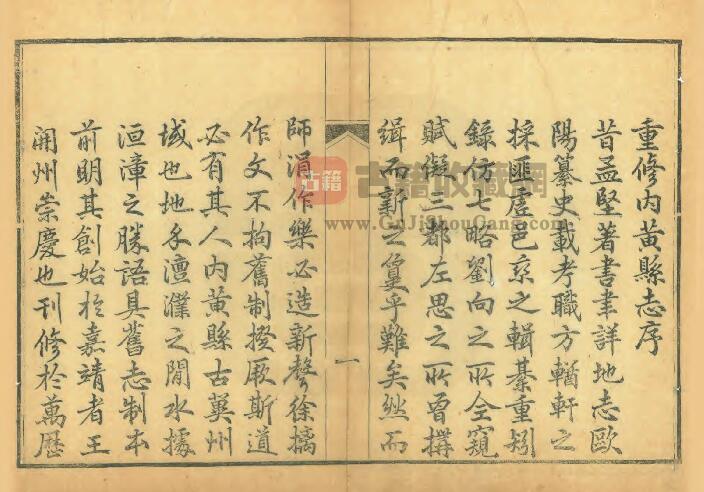 重修內黃縣志序
昔孟堅著書聿詳地志歐
陽纂史載考職方輶軒之
採匪虛邑乘之輯綦重矧
錄仿七略劉向之所全窺
賦儗三都左思之所曾撰
緝而新之戛乎難矣然而
一
師涓作樂必造新聲徐摛
作文不拘舊制撥厥斯道
必有其人內黃縣古冀州
域也地介澶濮之間水據
洹漳之勝語具舊志制本
前明其創始於嘉靖者王
開州崇慶也刊修於萬歷
古籍收藏網
www.GuJiShouCang.com
古籍